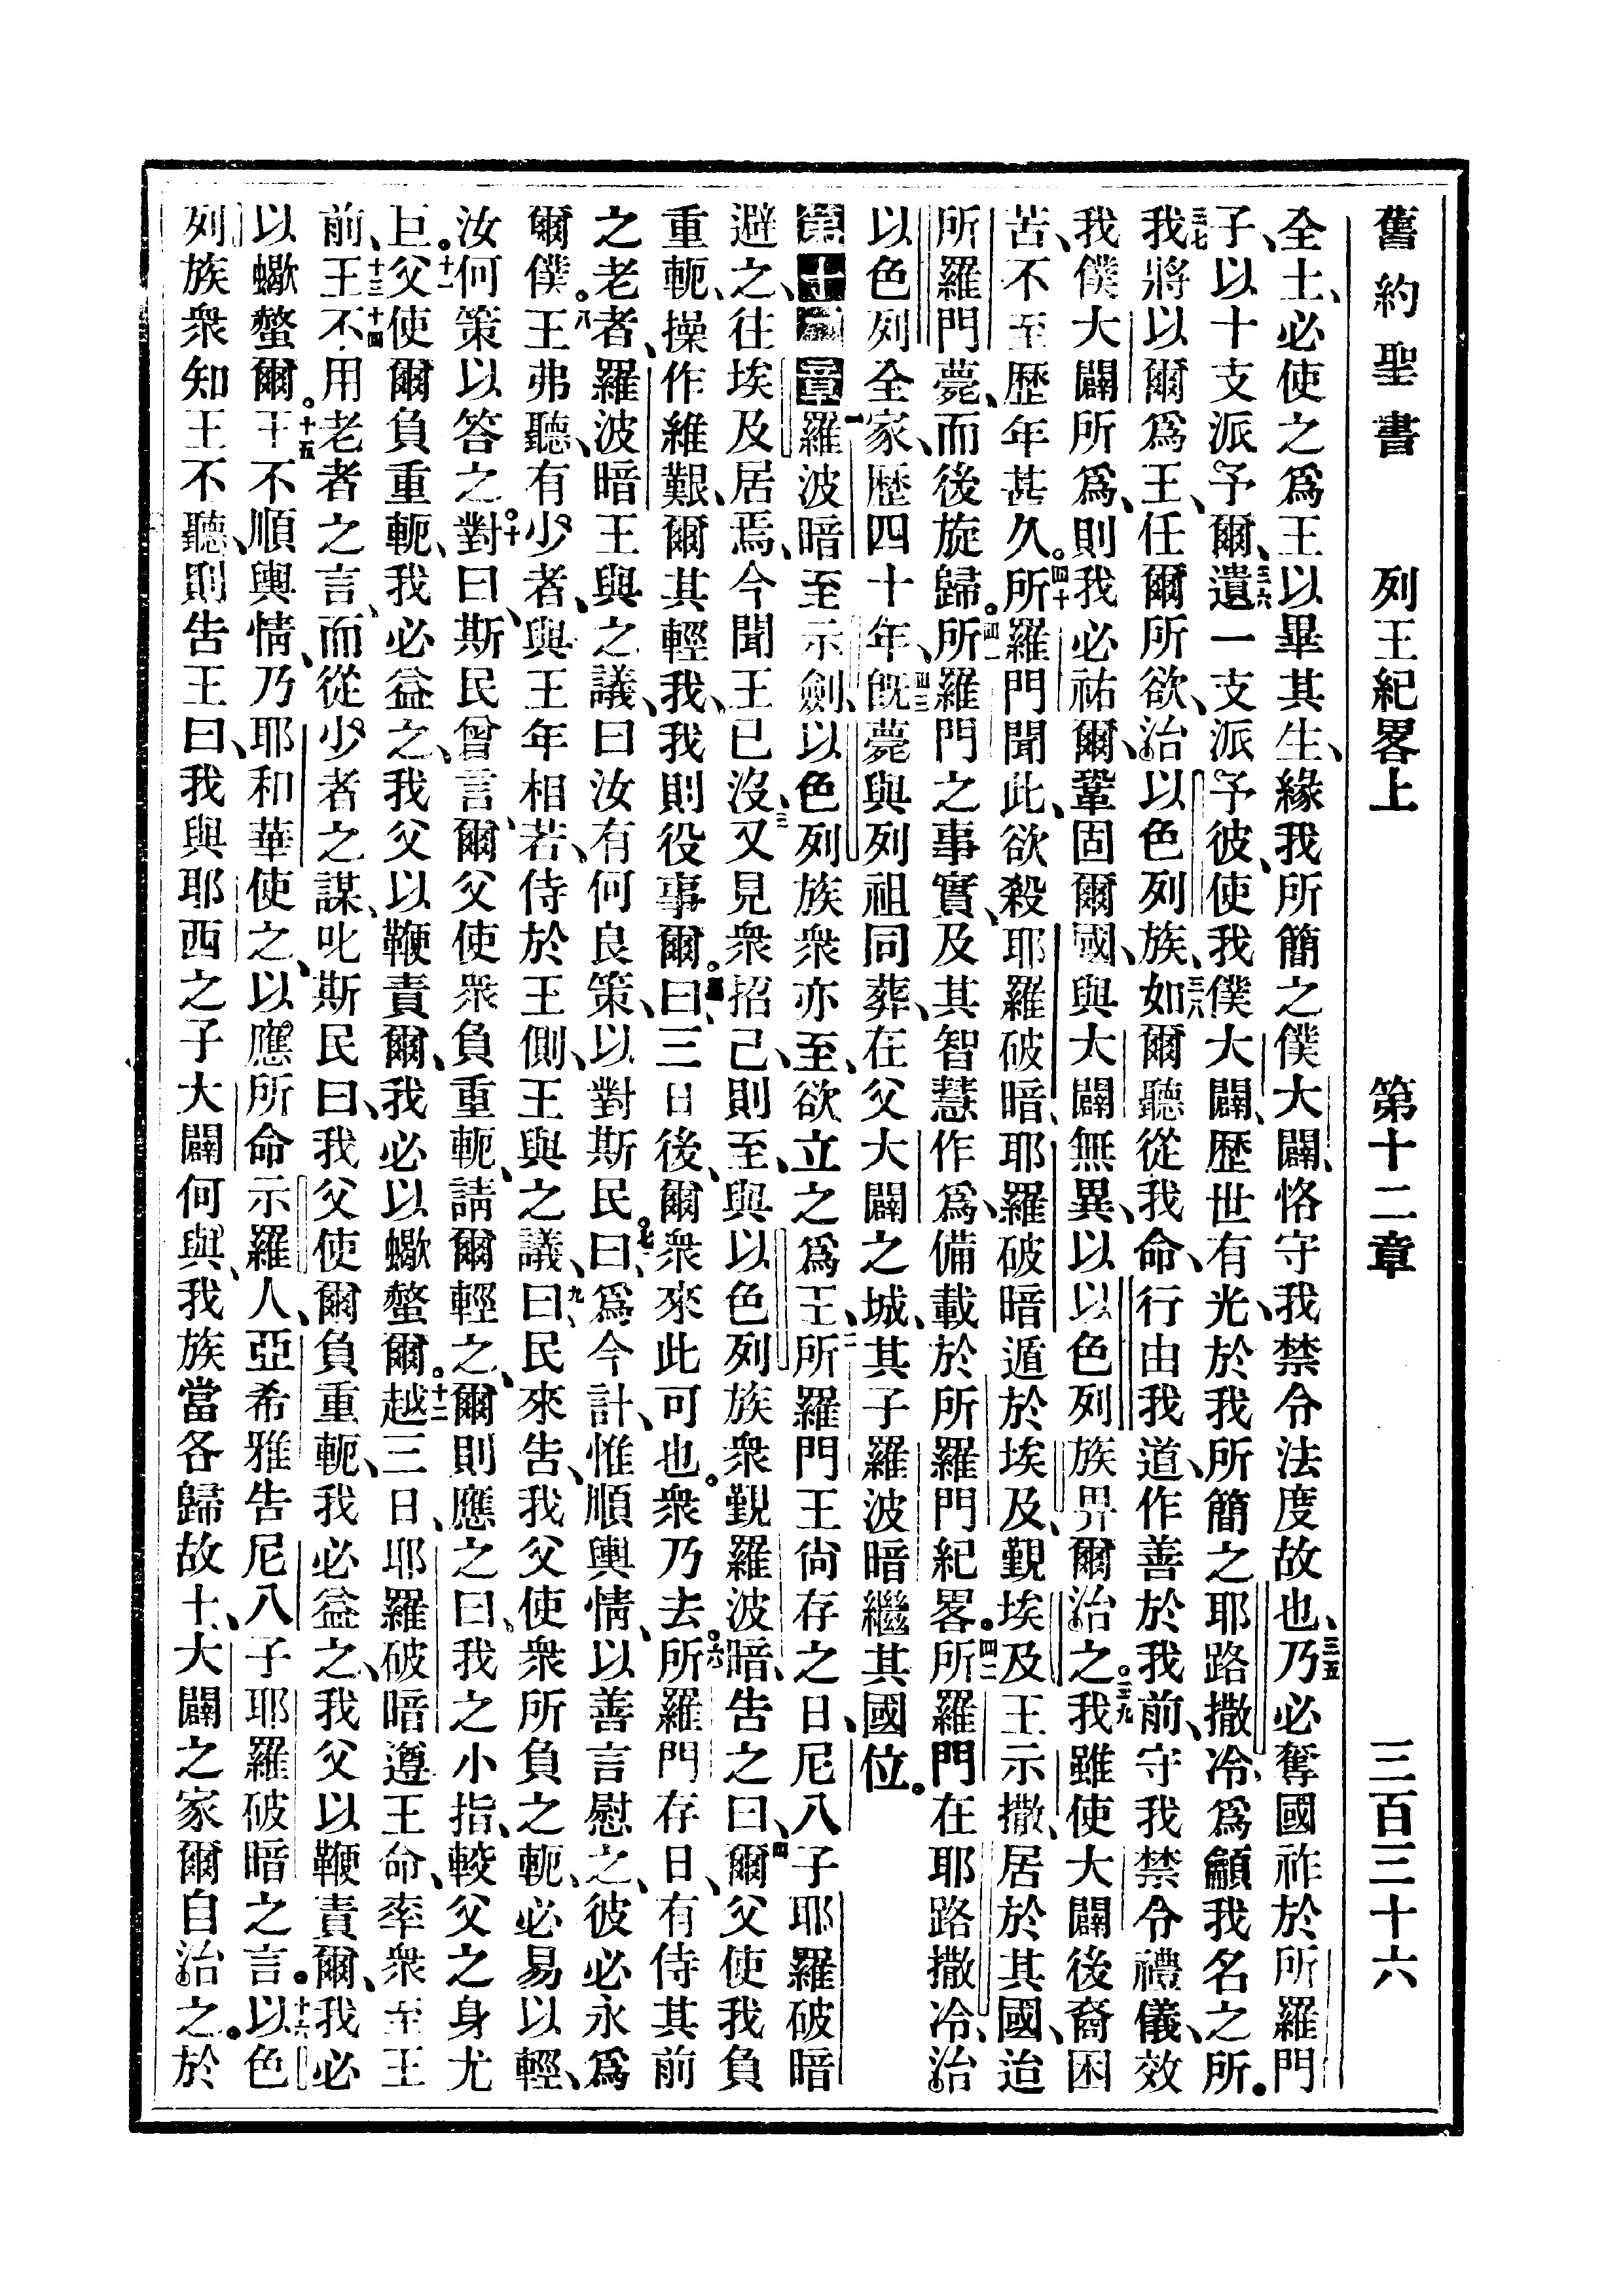 舊約聖書 列王紀畧上 第十二章 三百三十六
全土、必使之爲王以畢其生、緣我所簡之僕大闢、恪守我禁令法度故也、三五乃必奪國祚於所羅門
子、以十支派予爾、三六遺一支派予彼、使我僕大闢、歷世有光於我所簡之耶路撒冷、爲籲我名之所。
三七我將以爾爲王、任爾所欲、治以色列族、三八如爾聽從我命、行由我道、作善於我前、守我禁令禮儀、效
我僕大闢所爲、則我必祐爾、鞏固爾國、與大闢無異、以以色列族畀爾治之。三九我雖使大闢後裔困
苦、不至歷年甚久。四十所羅門聞此、欲殺耶羅破暗、耶羅破暗遁於埃及、覲埃及王示撒、居於其國、迨
所羅門薨、而後旋歸。四一所羅門之事實、及其智慧作爲、備載於所羅門紀畧。四二所羅門在耶路撒冷、治
以色列全家、歷四十年、四三旣薨與列祖同葬、在父大闢之城、其子羅波暗繼其國位。
第十二章 一羅波暗至示劍、以色列族衆亦至、欲立之爲王、二所羅門王尙存之日、尼八子耶羅破暗
避之、往埃及居焉、今聞王已沒、三又見衆招己、則至、與以色列族衆覲羅波暗、告之曰、四爾父使我負
重軛、操作維艱、爾其輕我、我則役事爾。五曰、三日後、爾衆來此可也。衆乃去。六所羅門存日、有侍其前
之老者、羅波暗王與之議、曰汝有何良策、以對斯民。七曰、爲今計、惟順輿情、以善言慰之、彼必永爲
爾僕。八王弗聽、有少者、與王年相若、侍於王側、王與之議、九曰、民來告、我父使衆所負之軛、必易以輕、
汝何策以答之。十對曰、斯民曾言、爾父使衆負重軛、請爾輕之、爾則應之曰、我之小指、較父之身尤
巨。十一父使爾負重軛、我必益之、我父以鞭責爾、我必以蠍螫爾。十二越三日、耶羅破暗遵王命、率衆至王
前、十三王不十四用老者之言、而從少者之謀、叱斯民曰、我父使爾負重軛、我必益之、我父以鞭責爾、我必
以蠍螫爾。十五王不順輿情、乃耶和華使之、以應所命示羅人、亞希雅告尼八子耶羅破暗之言。十六以色
列族衆知王不聽、則告王曰、我與耶西之子大闢何與、我族當各歸故土、大闢之家爾自治之。於